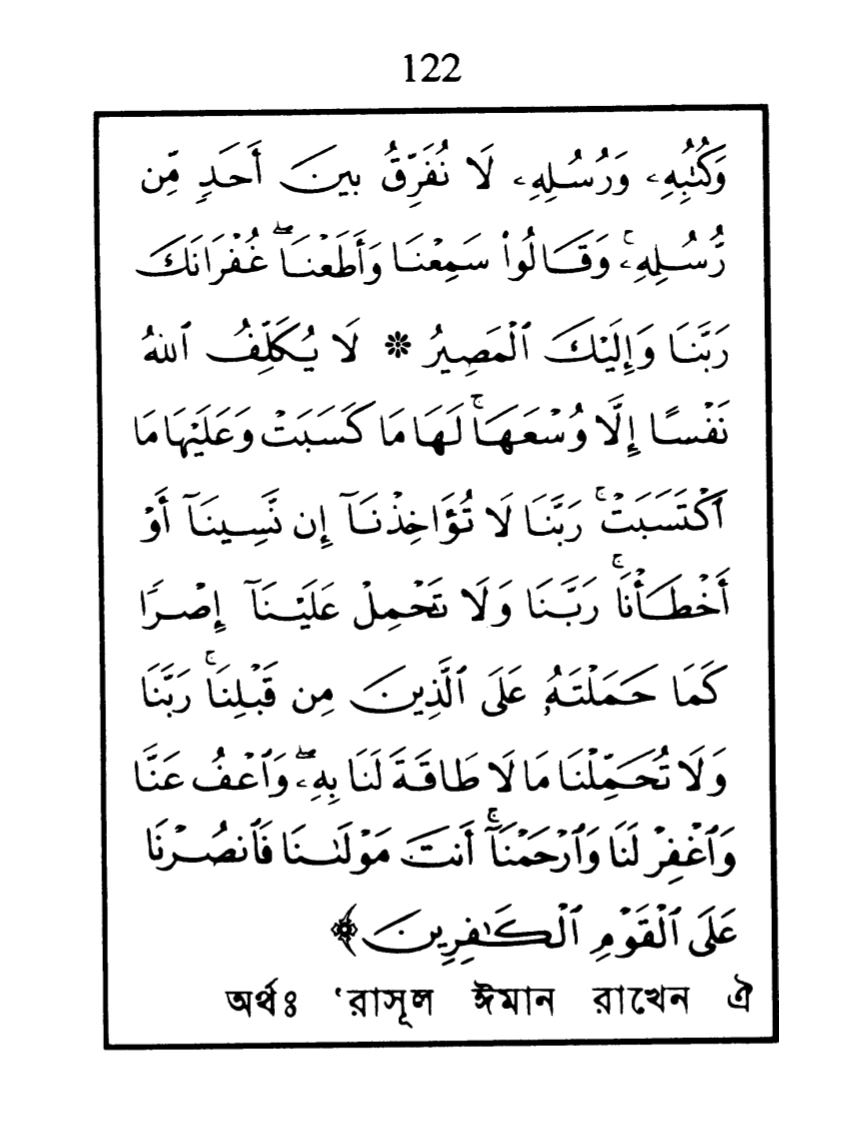 122
وَكُتُبِهِۦ وَرُسُلِهِۦ لَا نُفَرِّقُ بَيْنَ أَحَدٍ مِّن
رُّسُلِهِۦۚ وَقَالُوا۟ سَمِعْنَا وَأَطَعْنَاۖ غُفْرَانَكَ
رَبَّنَا وَإِلَيْكَ ٱلْمَصِيرُ * لَا يُكَلِّفُ ٱللَّهُ
نَفْسًا إِلَّا وُسْعَهَاۚ لَهَا مَا كَسَبَتْ وَعَلَيْهَا مَا
ٱكْتَسَبَتْۚ رَبَّنَا لَا تُؤَاخِذْنَآ إِن نَّسِينَآ أَوْ
أَخْطَأْنَاۚ رَبَّنَا وَلَا تَحْمِلْ عَلَيْنَآ إِصْرًا
كَمَا حَمَلْتَهُۥ عَلَى ٱلَّذِينَ مِن قَبْلِنَاۚ رَبَّنَا
وَلَا تُحَمِّلْنَا مَا لَا طَاقَةَ لَنَا بِهِۦۖ وَٱعْفُ عَنَّا
وَٱغْفِرْ لَنَا وَٱرْحَمْنَآۚ أَنتَ مَوْلَىٰنَا فَٱنصُرْنَا
عَلَى ٱلْقَوْمِ ٱلْكَٰفِرِينَ ﴾
অর্থঃ ‘রাসূল ঈমান রাখেন ঐ